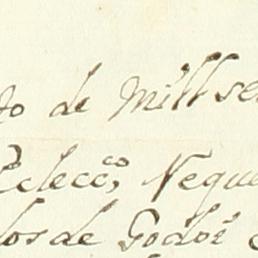 to de Mill se
Eclecc.co, Negue
los de Godoi